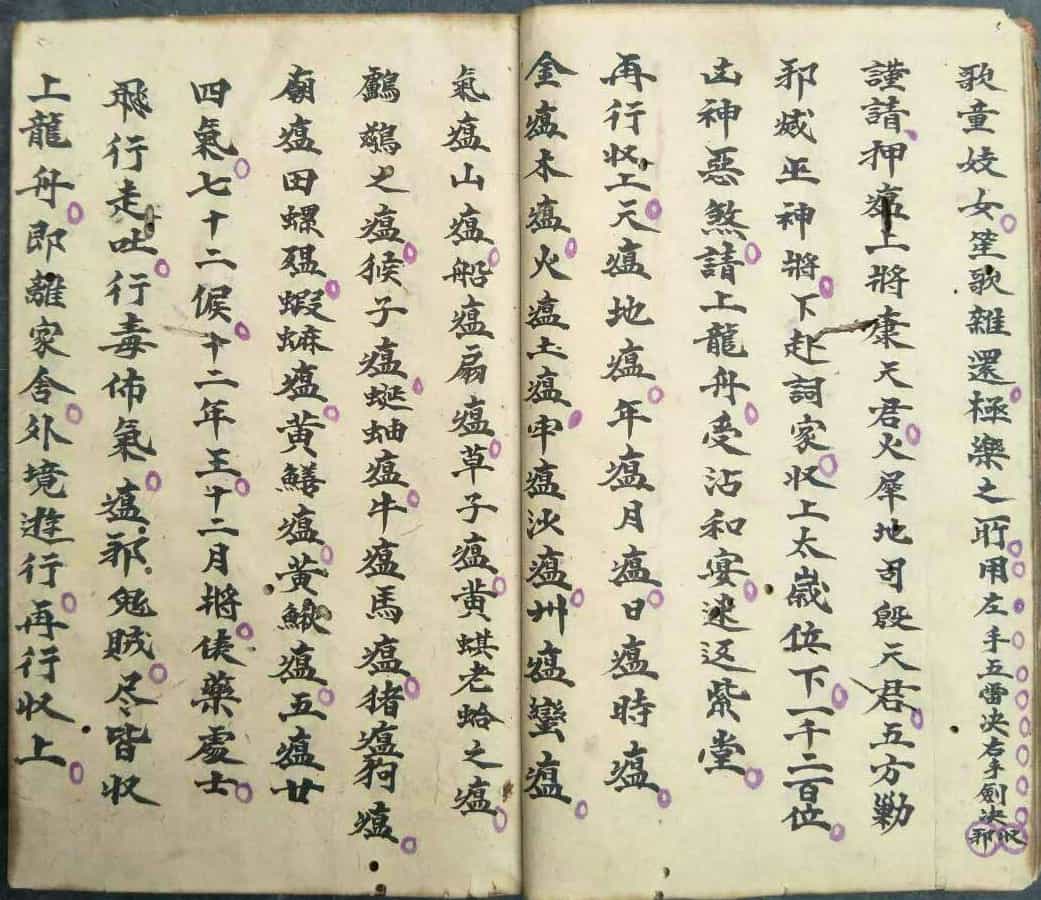 歌童妓女笙歌雜還極樂之所用左手五雷決右手劍決收邪
謹請押瘟上將康天君火犀地司殷天君五方勦
邪滅巫神將下赴詞家收上太歲位下一千二百位
凶神惡煞請上龍舟受沾和宴迷返紫堂
再行收上天瘟地瘟年瘟月瘟日瘟時瘟
金瘟木瘟火瘟土瘟牢瘟沙瘟州瘟蠻瘟
氣瘟山瘟船瘟扇瘟草子瘟黄蜞老蛤之瘟
鸕鷀之瘟猴子瘟蜒蚰瘟牛瘟馬瘟猪瘟狗瘟
廟瘟田螺瘟蝦蟆瘟黄鱔瘟黄鰍瘟五瘟廿
四氣七十二候十二年王十二月將侯藥處士
飛行走吐行毒佈氣瘟邪鬼賊尽皆收
上龍舟即離家舍外境遊行再行收上